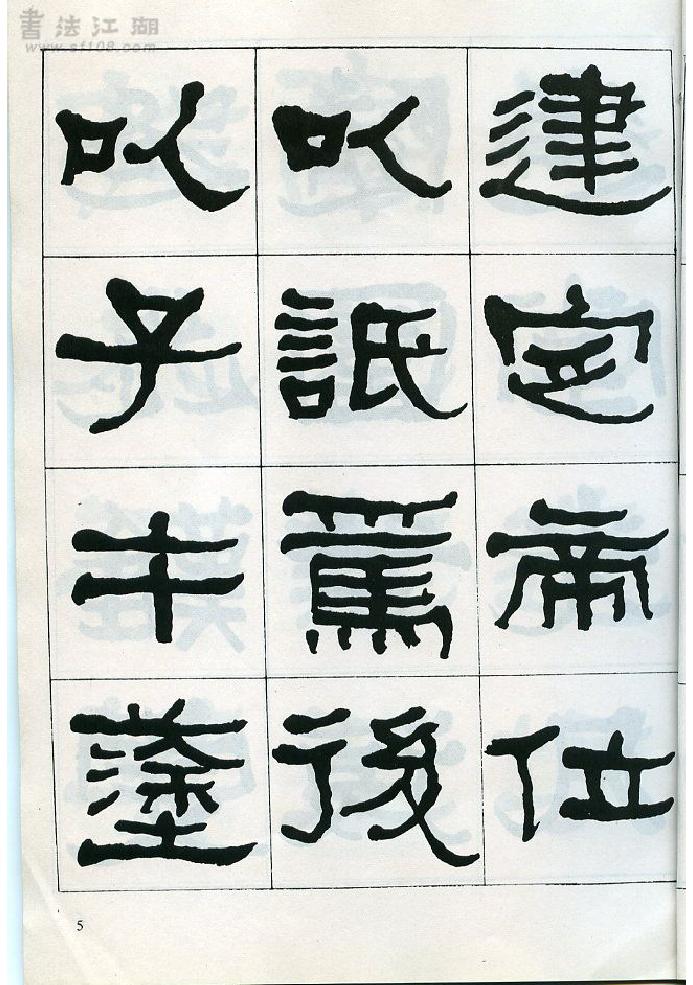 書法江湖
www.sf108.com
建定帝位
以詆焉後
以子午塗
5